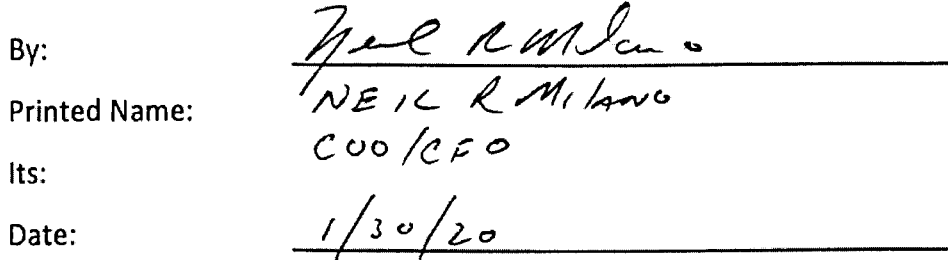 By: Neil R Milano
Printed Name: NEIL R MilANO
Its: COO/CFO
Date: 1/30/20